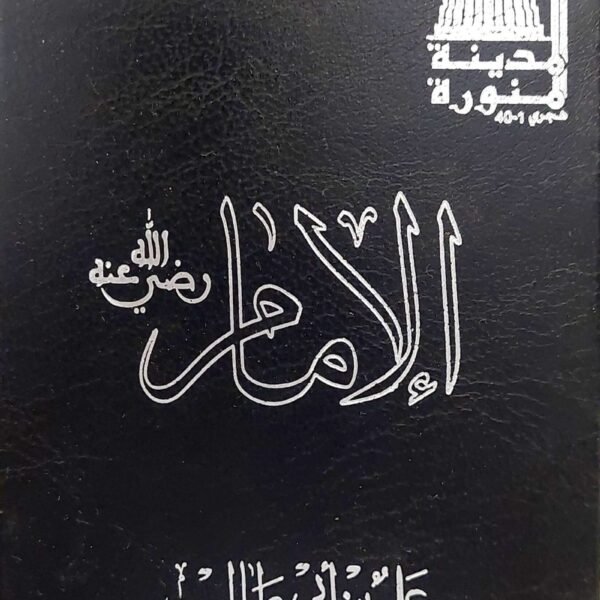 المدينة
المنورة
هجري 1-40
الإمام
رضي الله عنه
علي بن أبي طالب